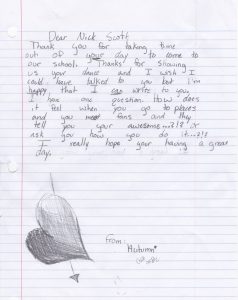 Dear Nick Scott
Thank you for taking time
out of your day to come to
our school. Thanks for showing
us your dance and I wish I
could have talked to you but I'm
happy that I can write to you,
I have one question. How does
it feel when you go to places
and you meet fans and they
tell you your awesome...?!? I
ask you how you do it...?!?
I really hope your having a great
day.
From:
Autumn